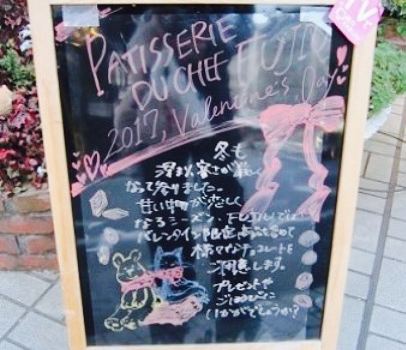 PATISSERIE
DU CHEF FUJIU
2017, Valentine's Day
冬も
深まり寒さが厳しく
なって参りました。
甘い物が恋しく
なるシーズン・FUJIUでは
バレンタイン限定
様々なチョコレートを
ご用意します。
プレゼントや
ごほうびに
いかがでしょうか?
TV